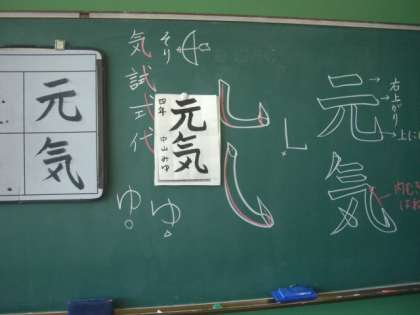 元気
気試式代
そり
四年
元気
中山みゆ
ゆ
ゆ
元
気
右上がり
上に
内